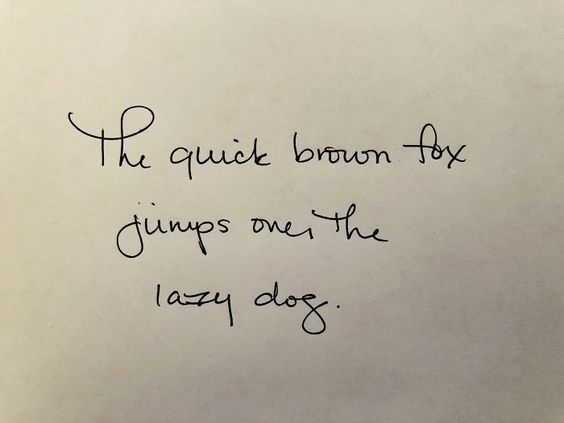 The quick brown fox
jumps over the
lazy dog.